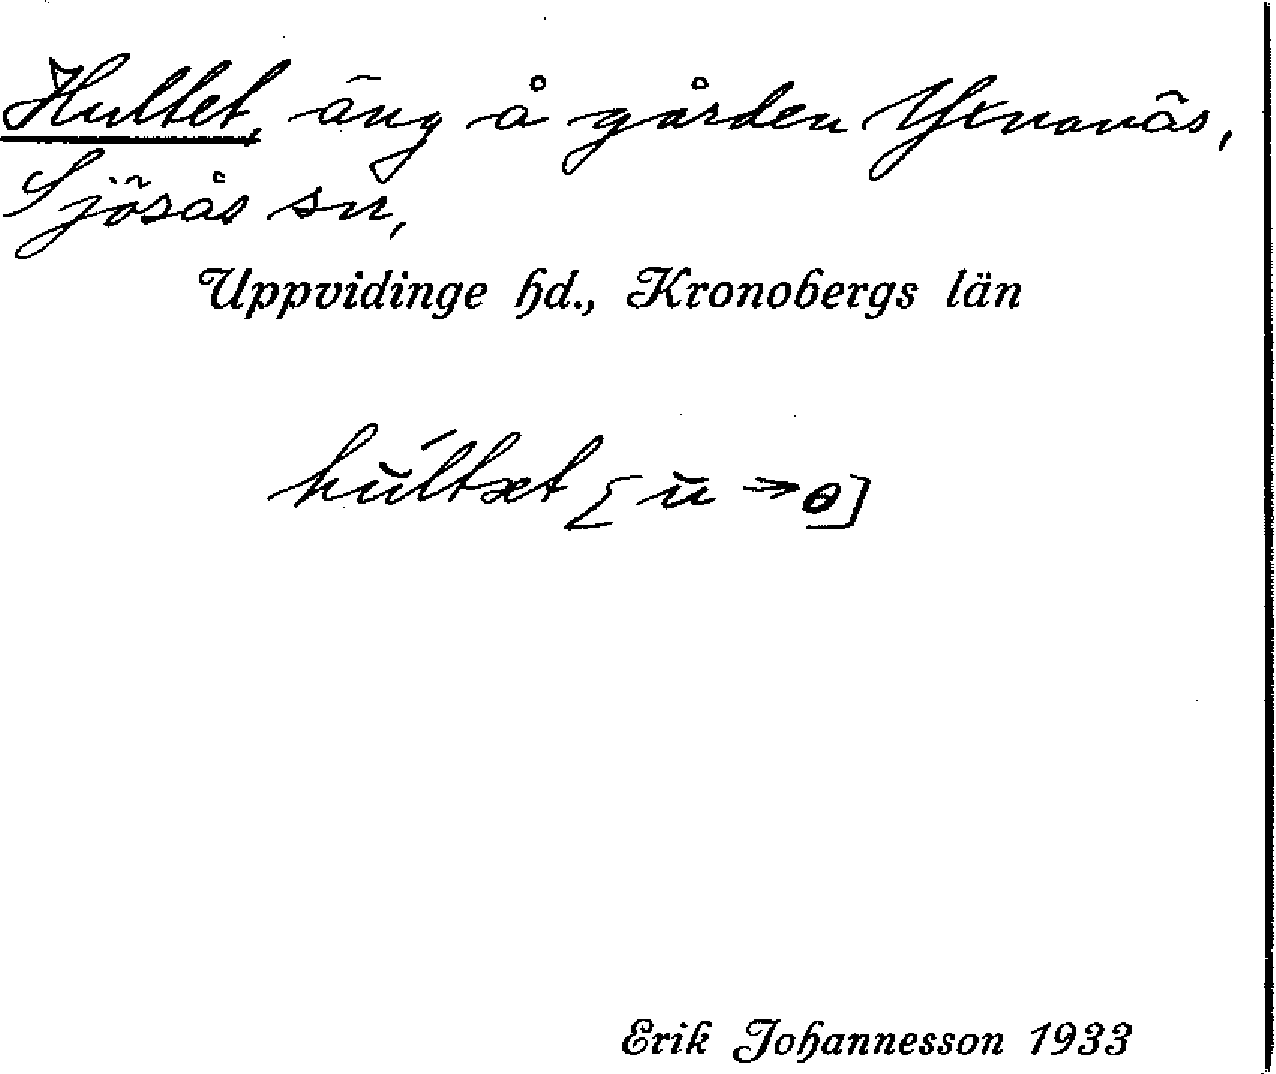 Hultet, äng å gården Yxnanäs,
Sjösås sn,
Uppvidinge hd., Kronobergs län
[u → ɵ]
Erik Johannesson 1933